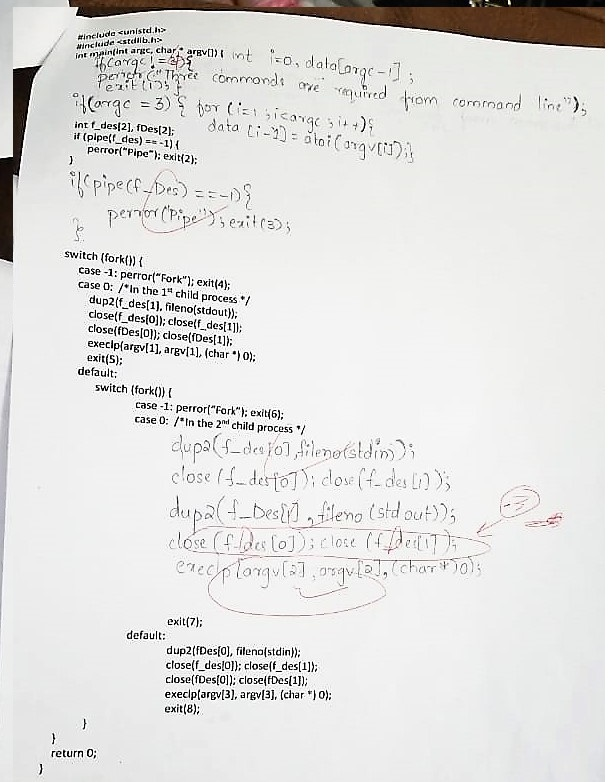 #include <unistd.h>
#include <stdlib.h>
int main(int argc, char* argv[]) { int i=0, data[argc-1];
if(argc != 3){
perror("Three commands are required from command line");
exit(1);}
if(argc = 3) { for (i=1; i<argc; i++){
int f_des[2], fDes[2]; data [i-1] = atoi(argv[i]);}
if (pipe(f_des) == -1) {
perror("Pipe"); exit(2);
}
if(pipe(f_Des) == -1){
perror("Pipe"); exit(3);
}
switch (fork()) {
case -1: perror("Fork"); exit(4);
case 0: /*In the 1st child process */
dup2(f_des[1], fileno(stdout));
close(f_des[0]); close(f_des[1]);
close(fDes[0]); close(fDes[1]);
execlp(argv[1], argv[1], (char *) 0);
exit(5);
default:
switch (fork()) {
case -1: perror("Fork"); exit(6);
case 0: /*In the 2nd child process */
dup2(f_des[0], fileno(stdin));
close (f_des[0]); close(f_des[1]);
dup2(f_Des[1], fileno (stdout));
-3
close (f_des[0]); close (f_des[1]);
execlp(argv[2], argv[2], (char*)0);
exit(7);
default:
dup2(fDes[0], fileno(stdin));
close(f_des[0]); close(f_des[1]);
close(fDes[0]); close(fDes[1]);
execlp(argv[3], argv[3], (char *) 0);
exit(8);
}
}
return 0;
}